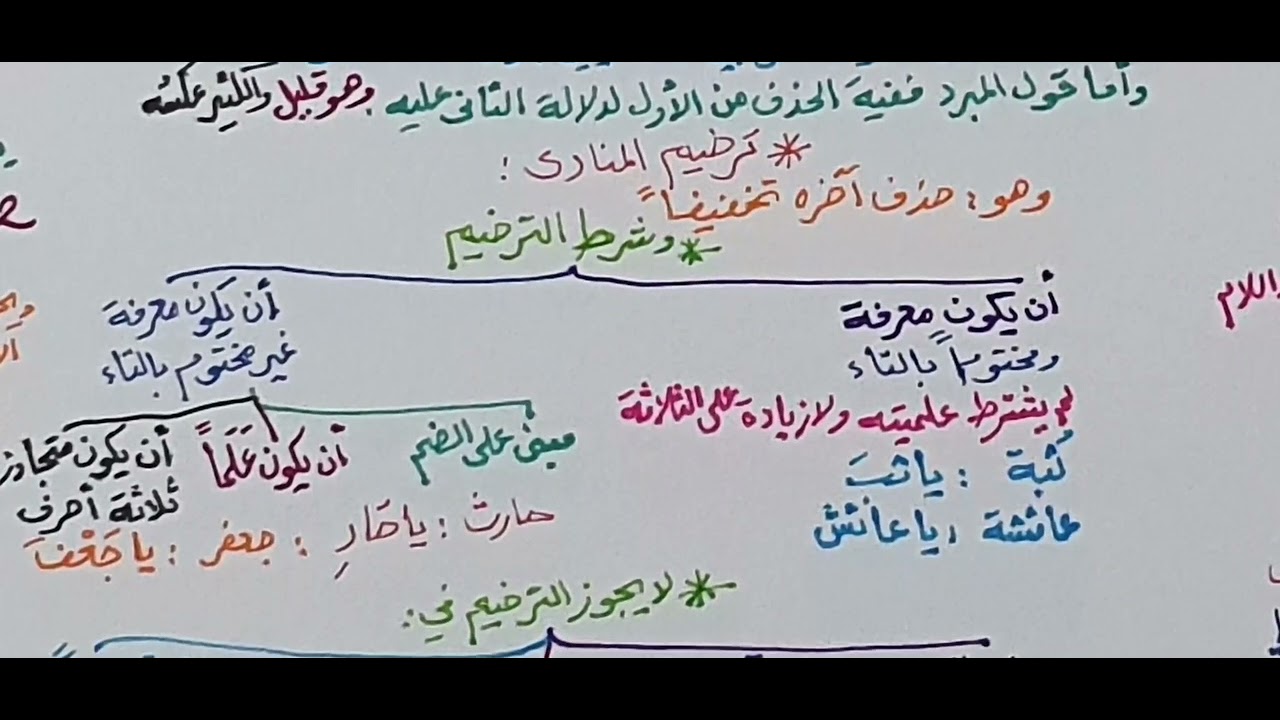 وأما قول المبرد ففيه الحذف من الأول لدلالة الثاني عليه وهو قليل والكثير عكسه
* ترخيم المنادى :
وهو : حذف آخره تخفيفاً
* وشرط الترخيم
أن يكون معرفة
ومختوماً بالتاء
لم يشترط علميته ولا زيادة على الثلاثة
ثُبة : يا ثبَ
عائشة ، يا عائش
أن يكون معرفة
غير مختوم بالتاء
مبني على الضم
أن يكون عَلَماً
أن يكون متجاوز
ثلاثة أحرف
حارث : يا حَارِ : جعفر : يا جَعْفَ
* لا يجوز الترخيم في :
اللام